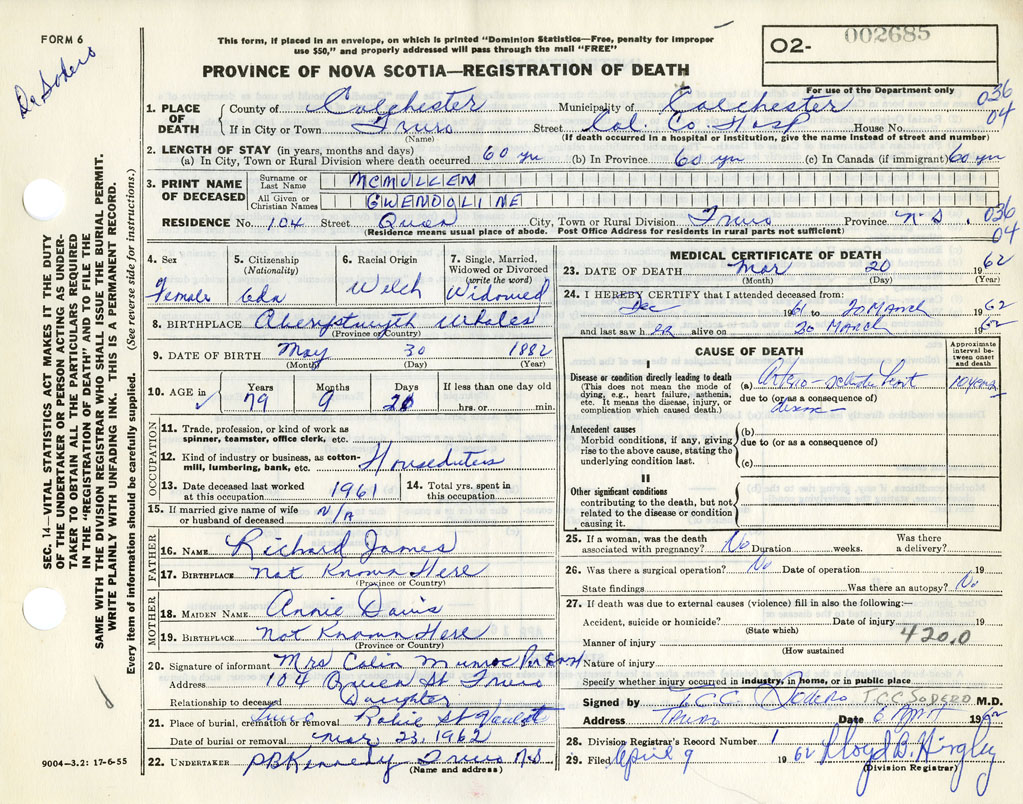 FORM 6
De Sodero
This form, if placed in an envelope, on which is printed "Dominion Statistics—Free, penalty for improper
use $50," and properly addressed will pass through the mail "FREE"
O2- 002685
PROVINCE OF NOVA SCOTIA—REGISTRATION OF DEATH
For use of the Department only
1. PLACE OF DEATH County of Colchester Municipality of Colchester 036
If in City or Town Truro Street Col. Co. Hosp House No. 04
(Name) (If death occurred in a hospital or institution, give the name instead of street and number)
2. LENGTH OF STAY (in years, months and days)
(a) In City, Town or Rural Division where death occurred 60 yrs (b) In Province 60 yrs (c) In Canada (if immigrant) 60 yrs
3. PRINT NAME OF DECEASED Surname or Last Name MCMULLEN
All Given or Christian Names GWENDOLINE
RESIDENCE No. 104 Street Queen City, Town or Rural Division Truro Province N.S. 036
(Residence means usual place of abode. Post Office Address for residents in rural parts not sufficient) 04
4. Sex Female
5. Citizenship (Nationality) Cdn
6. Racial Origin Welch
7. Single, Married, Widowed or Divorced (write the word) Widowed
8. BIRTHPLACE Aberystwyth Whales
(Province or Country)
9. DATE OF BIRTH May 30 1882
(Month) (Day) (Year)
10. AGE in Years Months Days If less than one day old
79 9 20 hrs. or min.
OCCUPATION
11. Trade, profession, or kind of work as
spinner, teamster, office clerk, etc.
12. Kind of industry or business, as cotton-
mill, lumbering, bank, etc. Houseduties
13. Date deceased last worked
at this occupation 1961
14. Total yrs. spent in
this occupation
15. If married give name of wife
or husband of deceased N/A
FATHER
16. NAME Richard James
17. BIRTHPLACE Not Known Here
(Province or Country)
MOTHER
18. MAIDEN NAME Annie Davis
19. BIRTHPLACE Not Known Here
(Province or Country)
20. Signature of informant Mrs Colin Munroe
Address 104 Queen St Truro
Relationship to deceased Daughter
21. Place of burial, cremation or removal Truro Robie St
Date of burial or removal Mar 23, 1962
22. UNDERTAKER PB Kennedy Truro N.S
(Name and address)
MEDICAL CERTIFICATE OF DEATH
23. DATE OF DEATH Mar 20 1962
(Month) (Day) (Year)
24. I HEREBY CERTIFY that I attended deceased from:
Dec 1961 to 20 March 1962
and last saw her alive on 20 March 1962
CAUSE OF DEATH
Approximate
interval be-
tween onset
and death
I
Disease or condition directly leading to death
(This does not mean the mode of
dying, e.g., heart failure, asthenia,
etc. It means the disease, injury, or
complication which caused death.)
(a) Arterio-sclerotic heart 10 years
due to (or as a consequence of)
disease
Antecedent causes
Morbid conditions, if any, giving
rise to the above cause, stating the
underlying condition last.
(b)
due to (or as a consequence of)
(c)
II
Other significant conditions
contributing to the death, but not
related to the disease or condition
causing it.
25. If a woman, was the death
associated with pregnancy? No Duration weeks. Was there
a delivery?
26. Was there a surgical operation? No Date of operation 19
State findings Was there an autopsy? No
27. If death was due to external causes (violence) fill in also the following:—
Accident, suicide or homicide? Date of injury 19
(State which)
420.0
Manner of injury
(How sustained
Nature of injury
Specify whether injury occurred in industry, in home, or in public place
Signed by T.C.C. Sodero T.C.C SODERO M.D.
Address Truro Date 6 April 1962
28. Division Registrar's Record Number 1
29. Filed April 9 1962 Lloyd B. Hingley
(Division Registrar)
SEC. 14—VITAL STATISTICS ACT MAKES IT THE DUTY
OF THE UNDERTAKER OR PERSON ACTING AS UNDER-
TAKER TO OBTAIN ALL THE PARTICULARS REQUIRED
IN THE "REGISTRATION OF DEATH" AND TO FILE THE
SAME WITH THE DIVISION REGISTRAR WHO SHALL ISSUE THE BURIAL PERMIT.
WRITE PLAINLY WITH UNFADING INK. THIS IS A PERMANENT RECORD.
Every item of information should be carefully supplied. (See reverse side for instructions.)
9004—3.2: 17-6-55